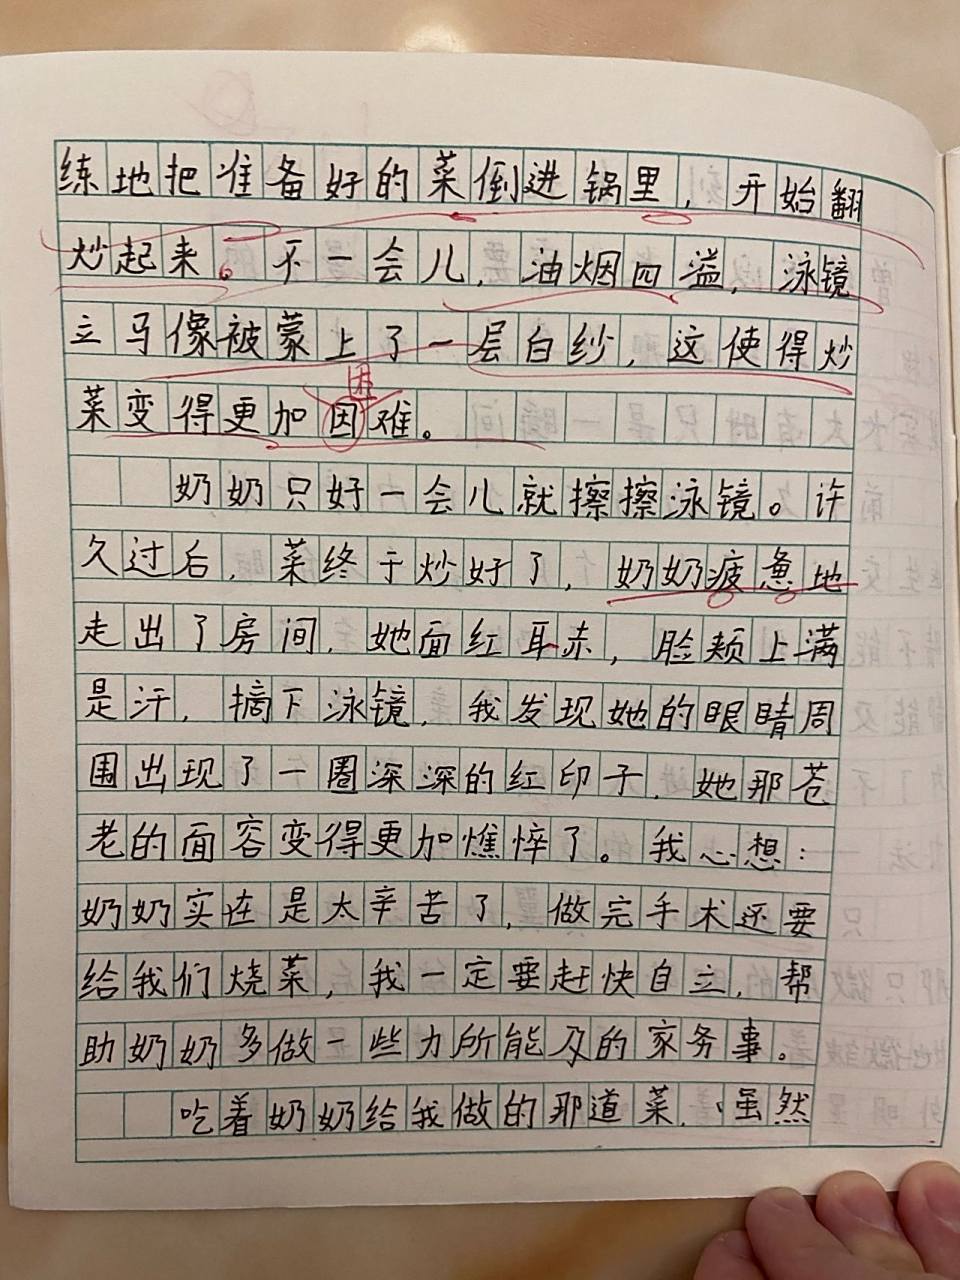 练地把准备好的菜倒进锅里，开始翻
炒起来。不一会儿，油烟四溢，泳镜
立马像被蒙上了一层白纱，这使得炒
困
菜变得更加因难。
奶奶只好一会儿就擦擦泳镜。许
久过后，菜终于炒好了，奶奶疲惫地
走出了房间，她面红耳赤，脸颊上满
是汗，摘下泳镜，我发现她的眼睛周
围出现了一圈深深的红印子，她那苍
老的面容变得更加憔悴了。我心想：
奶奶实在是太辛苦了，做完手术还要
给我们烧菜，我一定要赶快自立，帮
助奶奶多做一些力所能及的家务事。
吃着奶奶给我做的那道菜，虽然